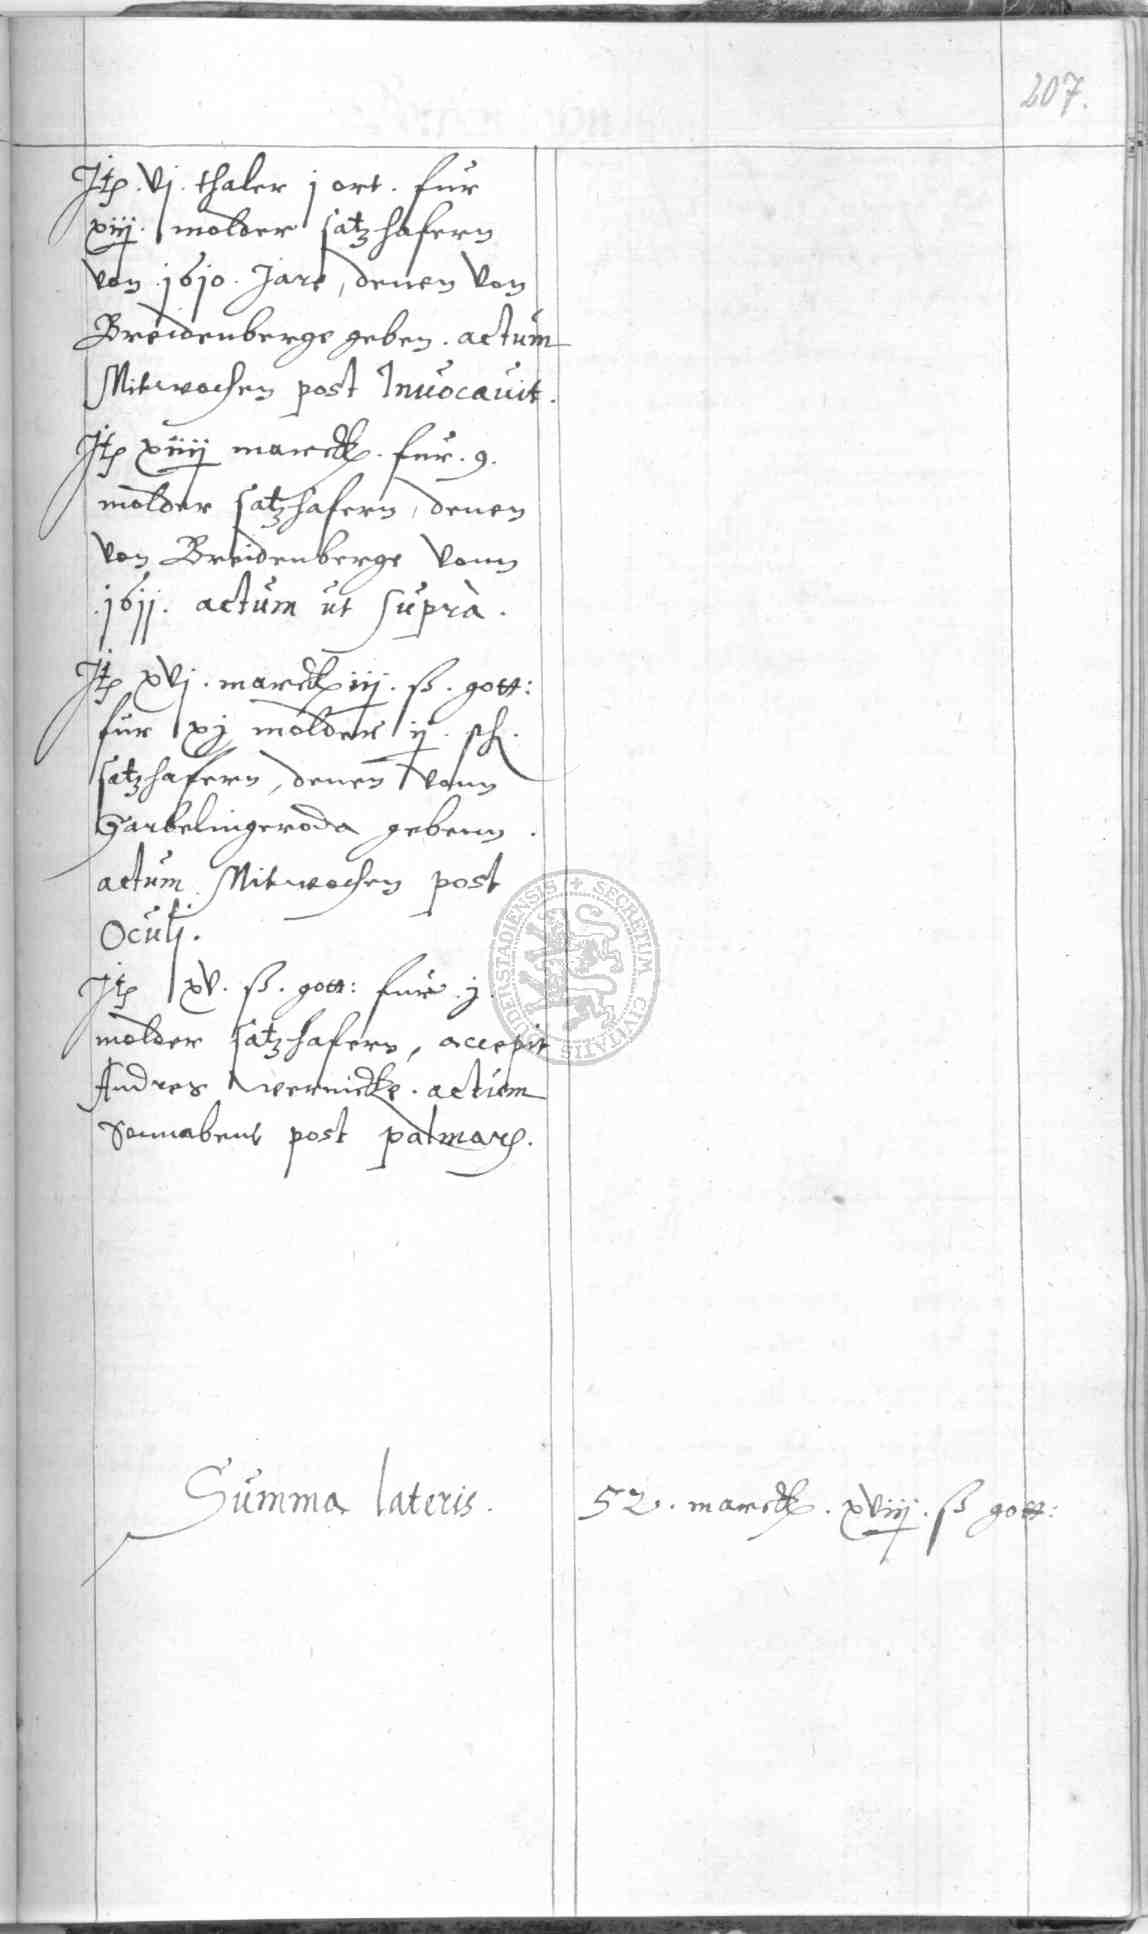 207.
Jtꝫ .vj. thaler j ort. für
xiij. molder satzhafern
von .1610. Jare, denen von
Breidenberge geben. actum
Mitwochen post Inuocauit.
Jtꝫ xiiij marck. für .9.
molder satzhafern, denen
von Breidenberge vonn
.1611. actum ut suprà.
Jtꝫ xvj. marck iij. ß. gott:
für xj molder ij. sch.
satzhafern, denen vonn
Garbelingeroda gebenn.
actum Mitwochen post
Oculj.
Jtꝫ xv. ß. gott: für .j.
molder satzhafern, accepit
Andres Wernicke. actum
Sonnabent post palmarꝫ.
SECRETUM CIVITATIS DUDERSTADIENSIS
Summa lateris. 52. marck. xviij. ß gott: